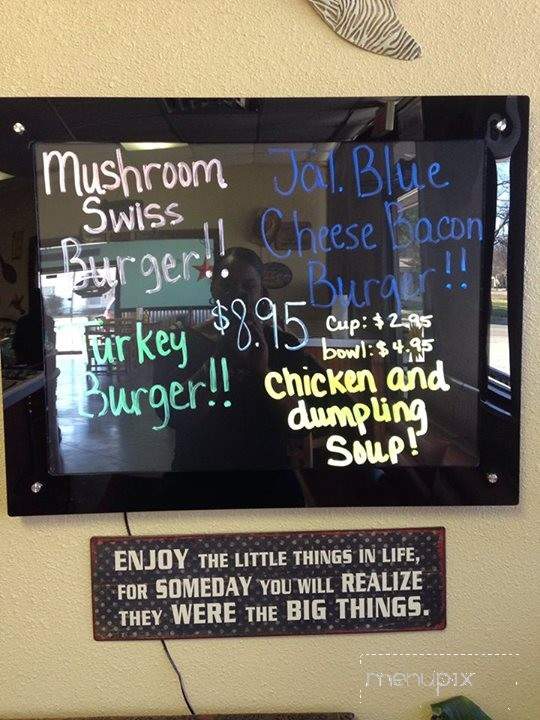 Mushroom
Swiss
Burger!!
Jal. Blue
Cheese Bacon
Burger!!
$8.95
Turkey
Burger!!
Cup: $2.95
bowl: $4.95
Chicken and
dumpling
Soup!
ENJOY THE LITTLE THINGS IN LIFE,
FOR SOMEDAY YOU WILL REALIZE
THEY WERE THE BIG THINGS.
menupix